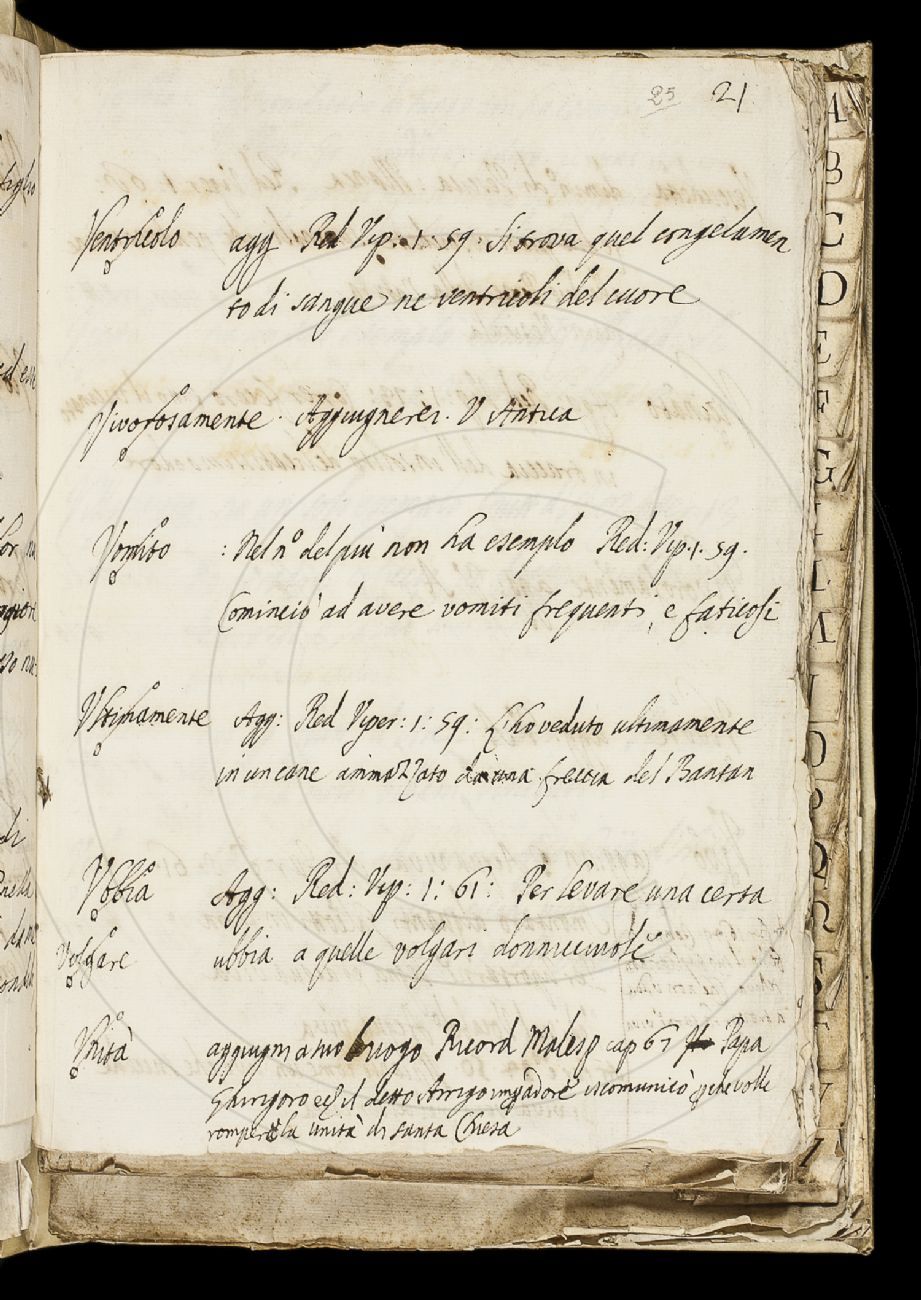 25 21
Ventricolo agg Red Vip: 1. 59. Si trova quel congelamen
to di sangue ne ventricoli del cuore
Aggiugnerei. V Antica
Vomito : Nel n° del più non ha esemplo Red: Vip. 1. 59.
Cominciò ad avere vomiti frequenti, e faticosi
Ultimamente Agg: Red Viper: 1: 59: L'ho veduto ultimamente
in un cane ammazzato da una freccia del Bantan
Ubbia Agg: Red: Vip: 1: 61: Per levare una certa
Volgare ubbia a quelle volgari donnicciuole
Unità aggiugni a suo luogo Ricord Malesp cap 67 Papa
Ghirigoro il detto Arrigo impadore iscomunicò pche volle
rompere la unità di santa Chiesa
A
B
C
D
E
F
G
H
I
L
M
N
O
P
Q
R
S
T
V
Z